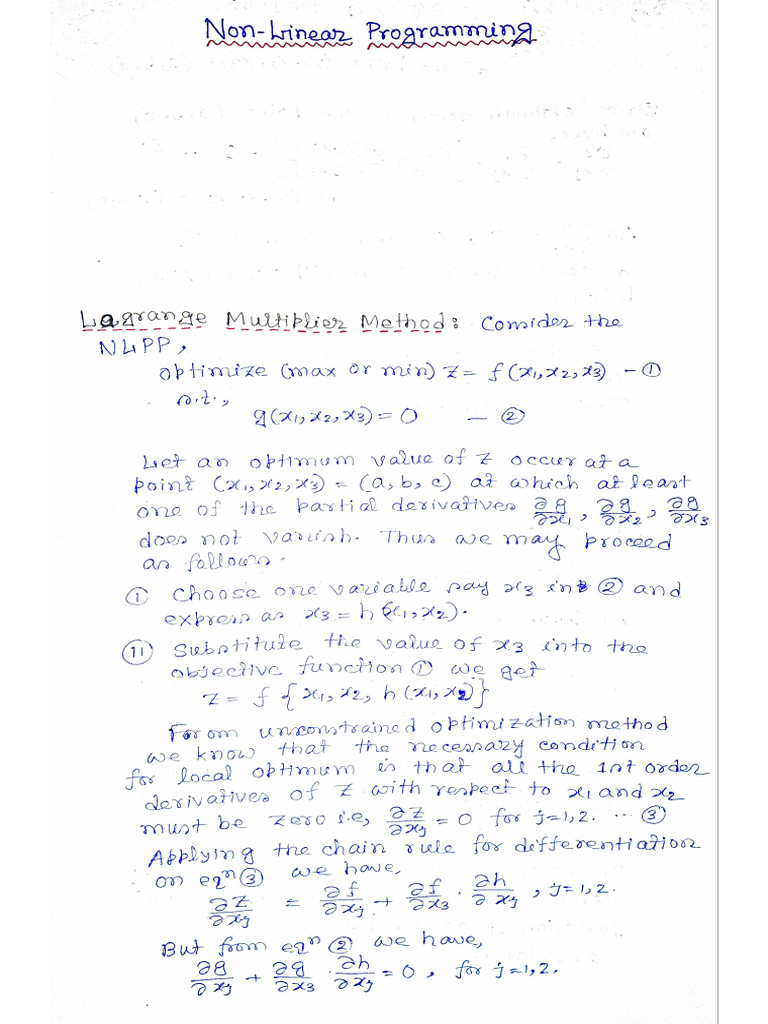 Non-Linear Programming
Lagrange Multiplier Method: Consider the
NLPP,
optimize (max or min) z = f(x1, x2, x3) – ①
s.t.,
g(x1, x2, x3) = 0 – ②
Let an optimum value of z occur at a
point (x1, x2, x3) = (a, b, c) at which at least
one of the partial derivatives ∂g/∂x1, ∂g/∂x2, ∂g/∂x3
does not vanish. Thus we may proceed
as follows.
(i) Choose one variable say x3 in ② and
express as x3 = h(x1, x2).
(ii) Substitute the value of x3 into the
objective function ① we get
z = f{x1, x2, h(x1, x2)}
From unconstrained optimization method
we know that the necessary condition
for local optimum is that all the 1st order
derivatives of z with respect to x1 and x2
must be zero i.e, ∂z/∂xj = 0 for j=1,2. ... ③
Applying the chain rule for differentiation
on eqn ③ we have,
∂z/∂xj = ∂f/∂xj + ∂f/∂x3 · ∂h/∂xj, j=1,2.
But from eqn ② we have,
∂g/∂xj + ∂g/∂x3 · ∂h/∂xj = 0, for j=1,2.